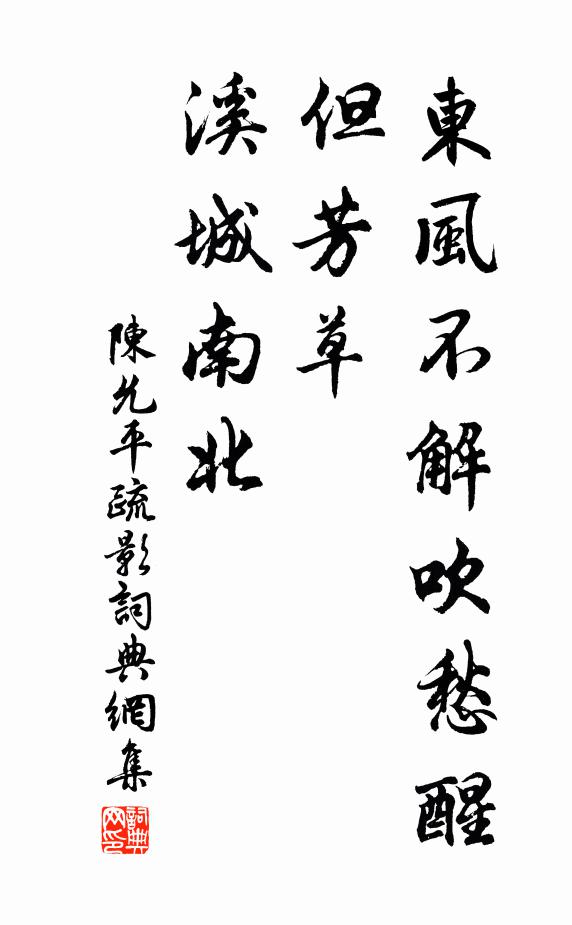 東風不解吹愁醒
但芳草
溪城南北
陳允平疏影詞典網集
詞典网印